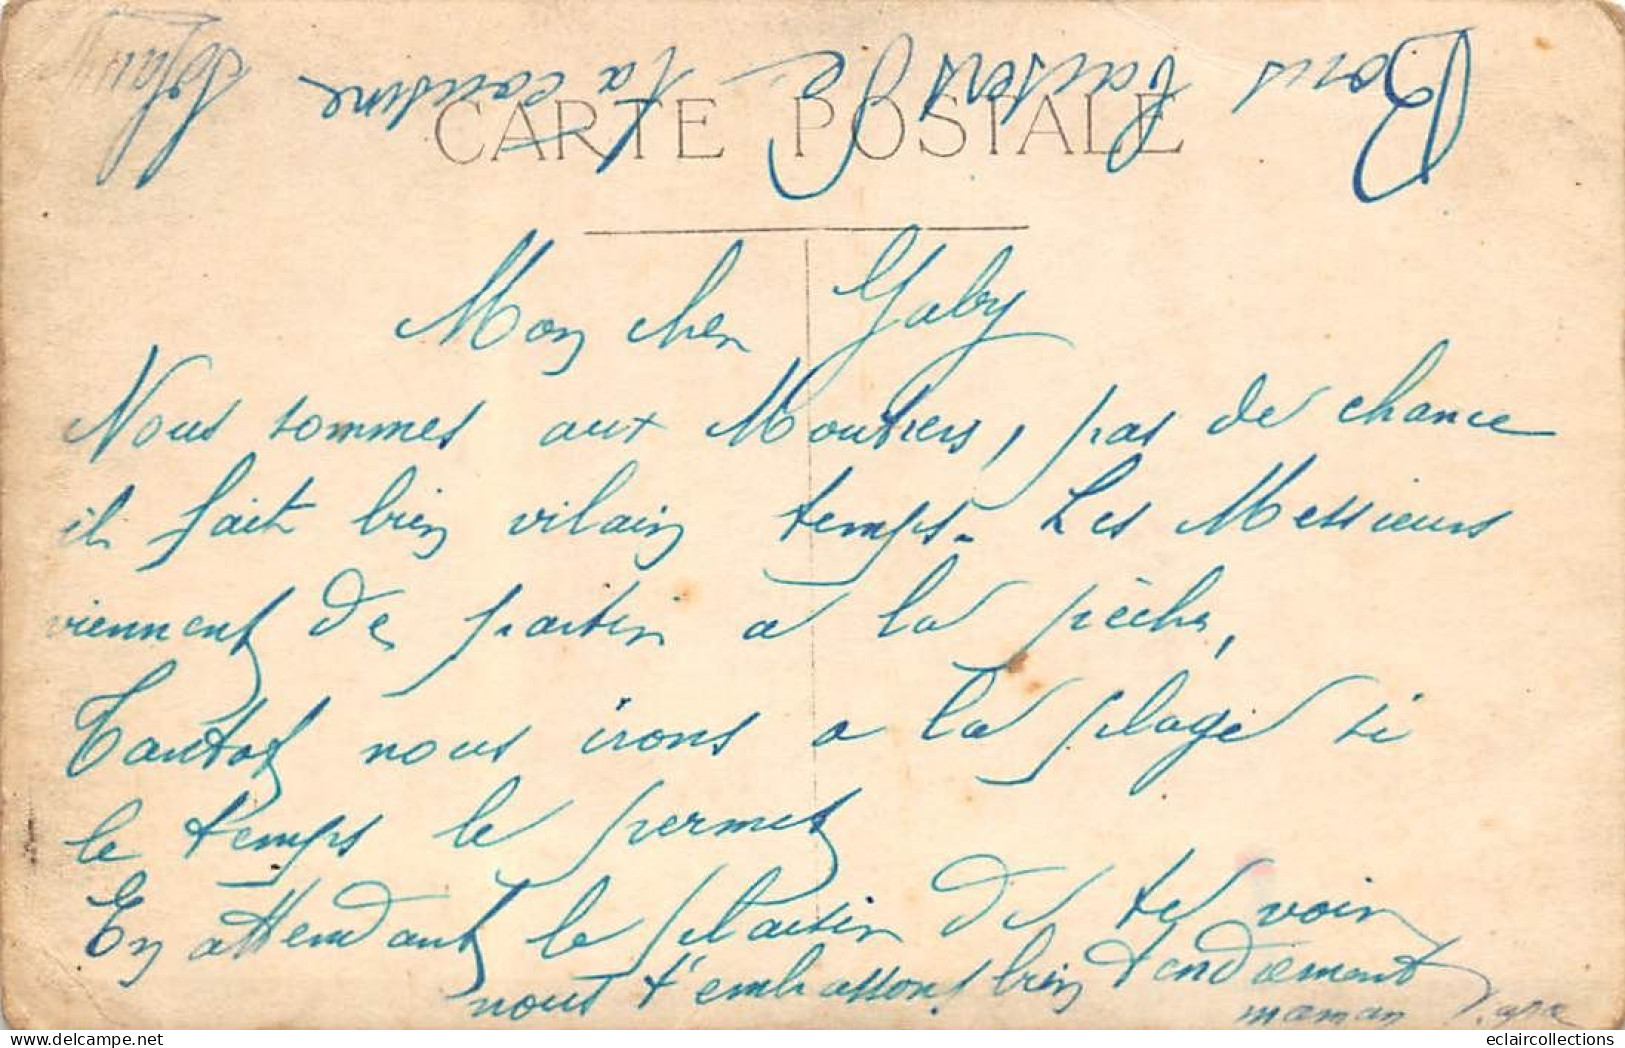 Bons baisers de ta cousine
CARTE POSTALE
Mon cher Gaby
Nous sommes aux Moutiers, pas de chance
il fait bien vilain temps. Les Messieurs
viennent de partir a la pêche,
Tantot nous irons a la plage si
le temps le permet
En attendant le plaisir de te voir
nous t'embrassons bien tendrement
maman Papa
eclaircollections